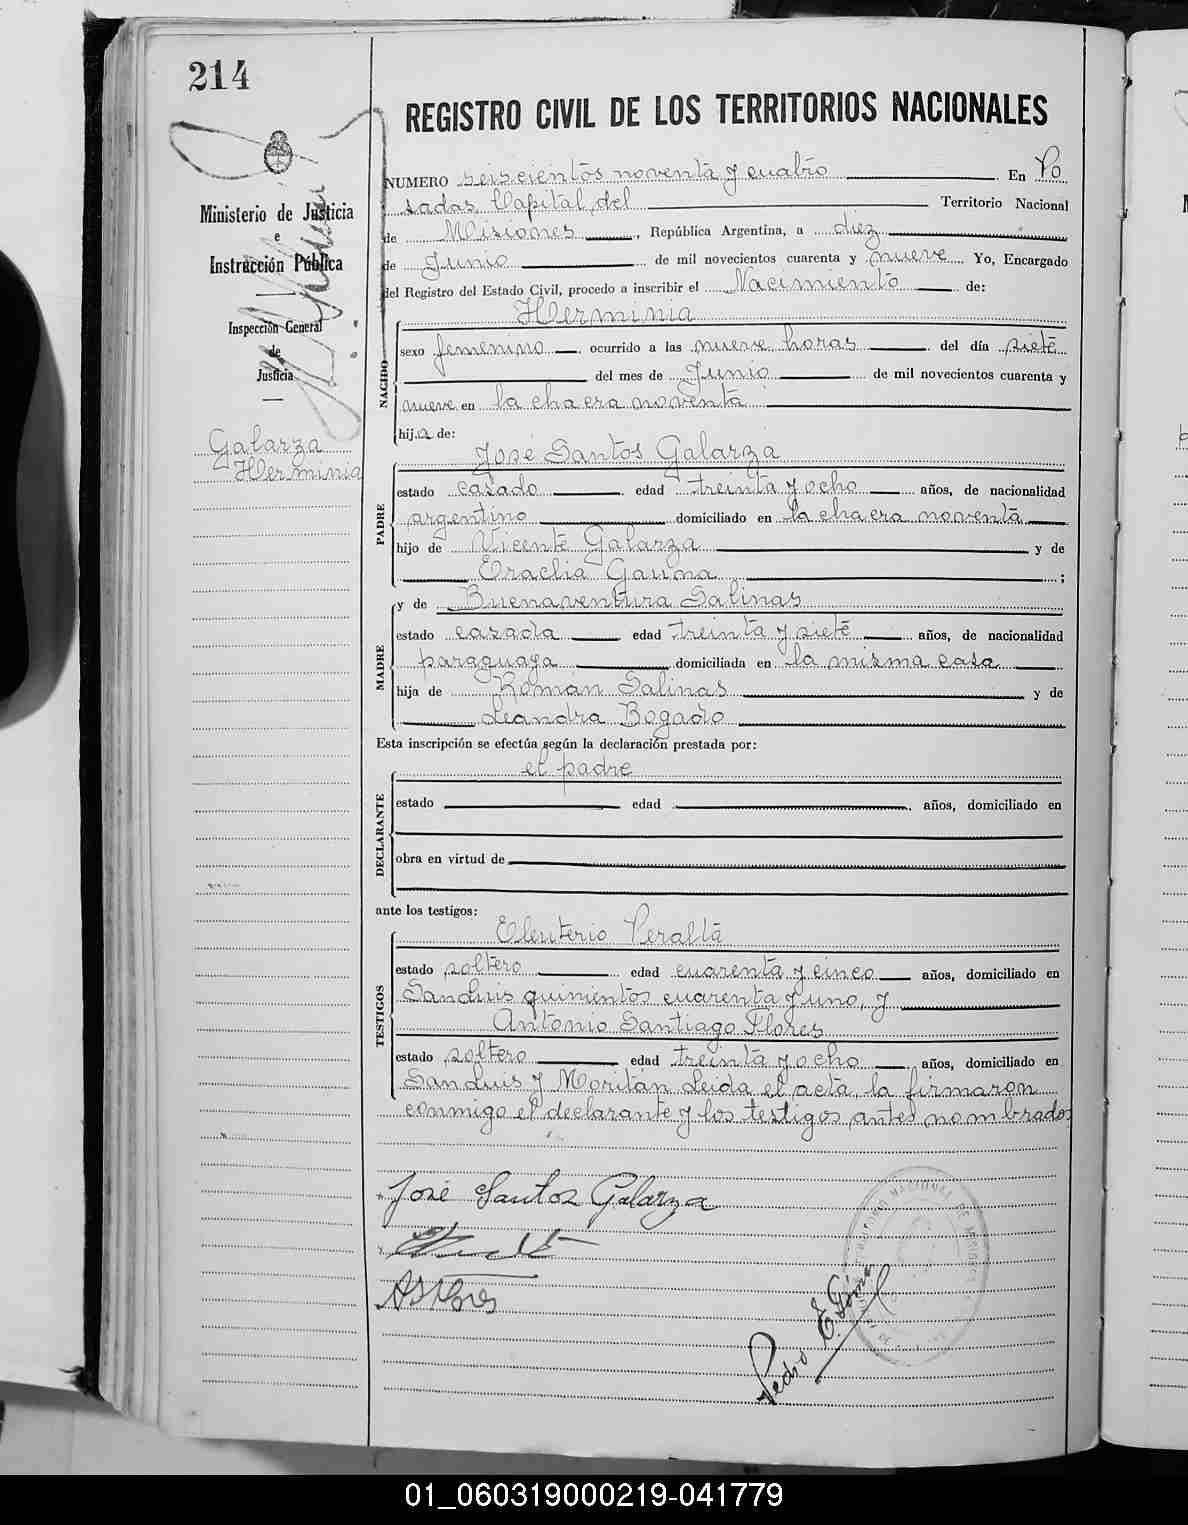 214
REGISTRO CIVIL DE LOS TERRITORIOS NACIONALES
Ministerio de Justicia
e
Instrucción Pública
Inspección General
de
Justicia
Galarza
Herminia
NUMERO seiscientos noventa y cuatro En Po
sadas, Capital del Territorio Nacional
de Misiones, República Argentina, a diez
de Junio de mil novecientos cuarenta y nueve Yo, Encargado
del Registro del Estado Civil, procedo a inscribir el Nacimiento de:
NACIDO
Herminia
sexo femenino ocurrido a las nueve horas del día siete
del mes de Junio de mil novecientos cuarenta y
nueve en la chacra noventa
hija de:
PADRE
José Santos Galarza
estado casado edad treinta y ocho años, de nacionalidad
argentino domiciliado en la chacra noventa
hijo de Vicente Galarza y de
Eraclia Gauna;
MADRE
y de Buenaventura Salinas
estado casada edad treinta y siete años, de nacionalidad
paraguaya domiciliada en la misma casa
hija de Román Salinas y de
Leandra Bogado
Esta inscripción se efectúa según la declaración prestada por:
DECLARANTE
el padre
estado edad años, domiciliado en
obra en virtud de
ante los testigos:
TESTIGOS
Eleuterio Peralta
estado soltero edad cuarenta y cinco años, domiciliado en
San Luis quinientos cuarenta y uno, y
Antonio Santiago Flores
estado soltero edad treinta y ocho años, domiciliado en
San Luis y Moritán Leida el acta la firmaron
conmigo el declarante y los testigos antes nombrados
José Santos Galarza
A S Flores
Pedro E.
01_060319000219-041779